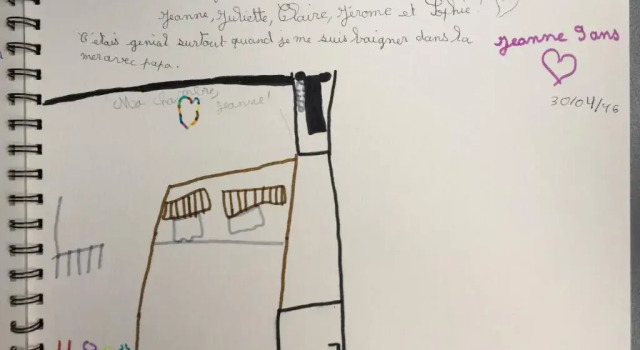 Jeanne, Juliette, Claire, Jérome et Sophie
C'étais genial surtout quand je me suis baigner dans la
mer avec papa.
Jeanne 9 ans
30/04/16
Ma chambre,
Jeanne!